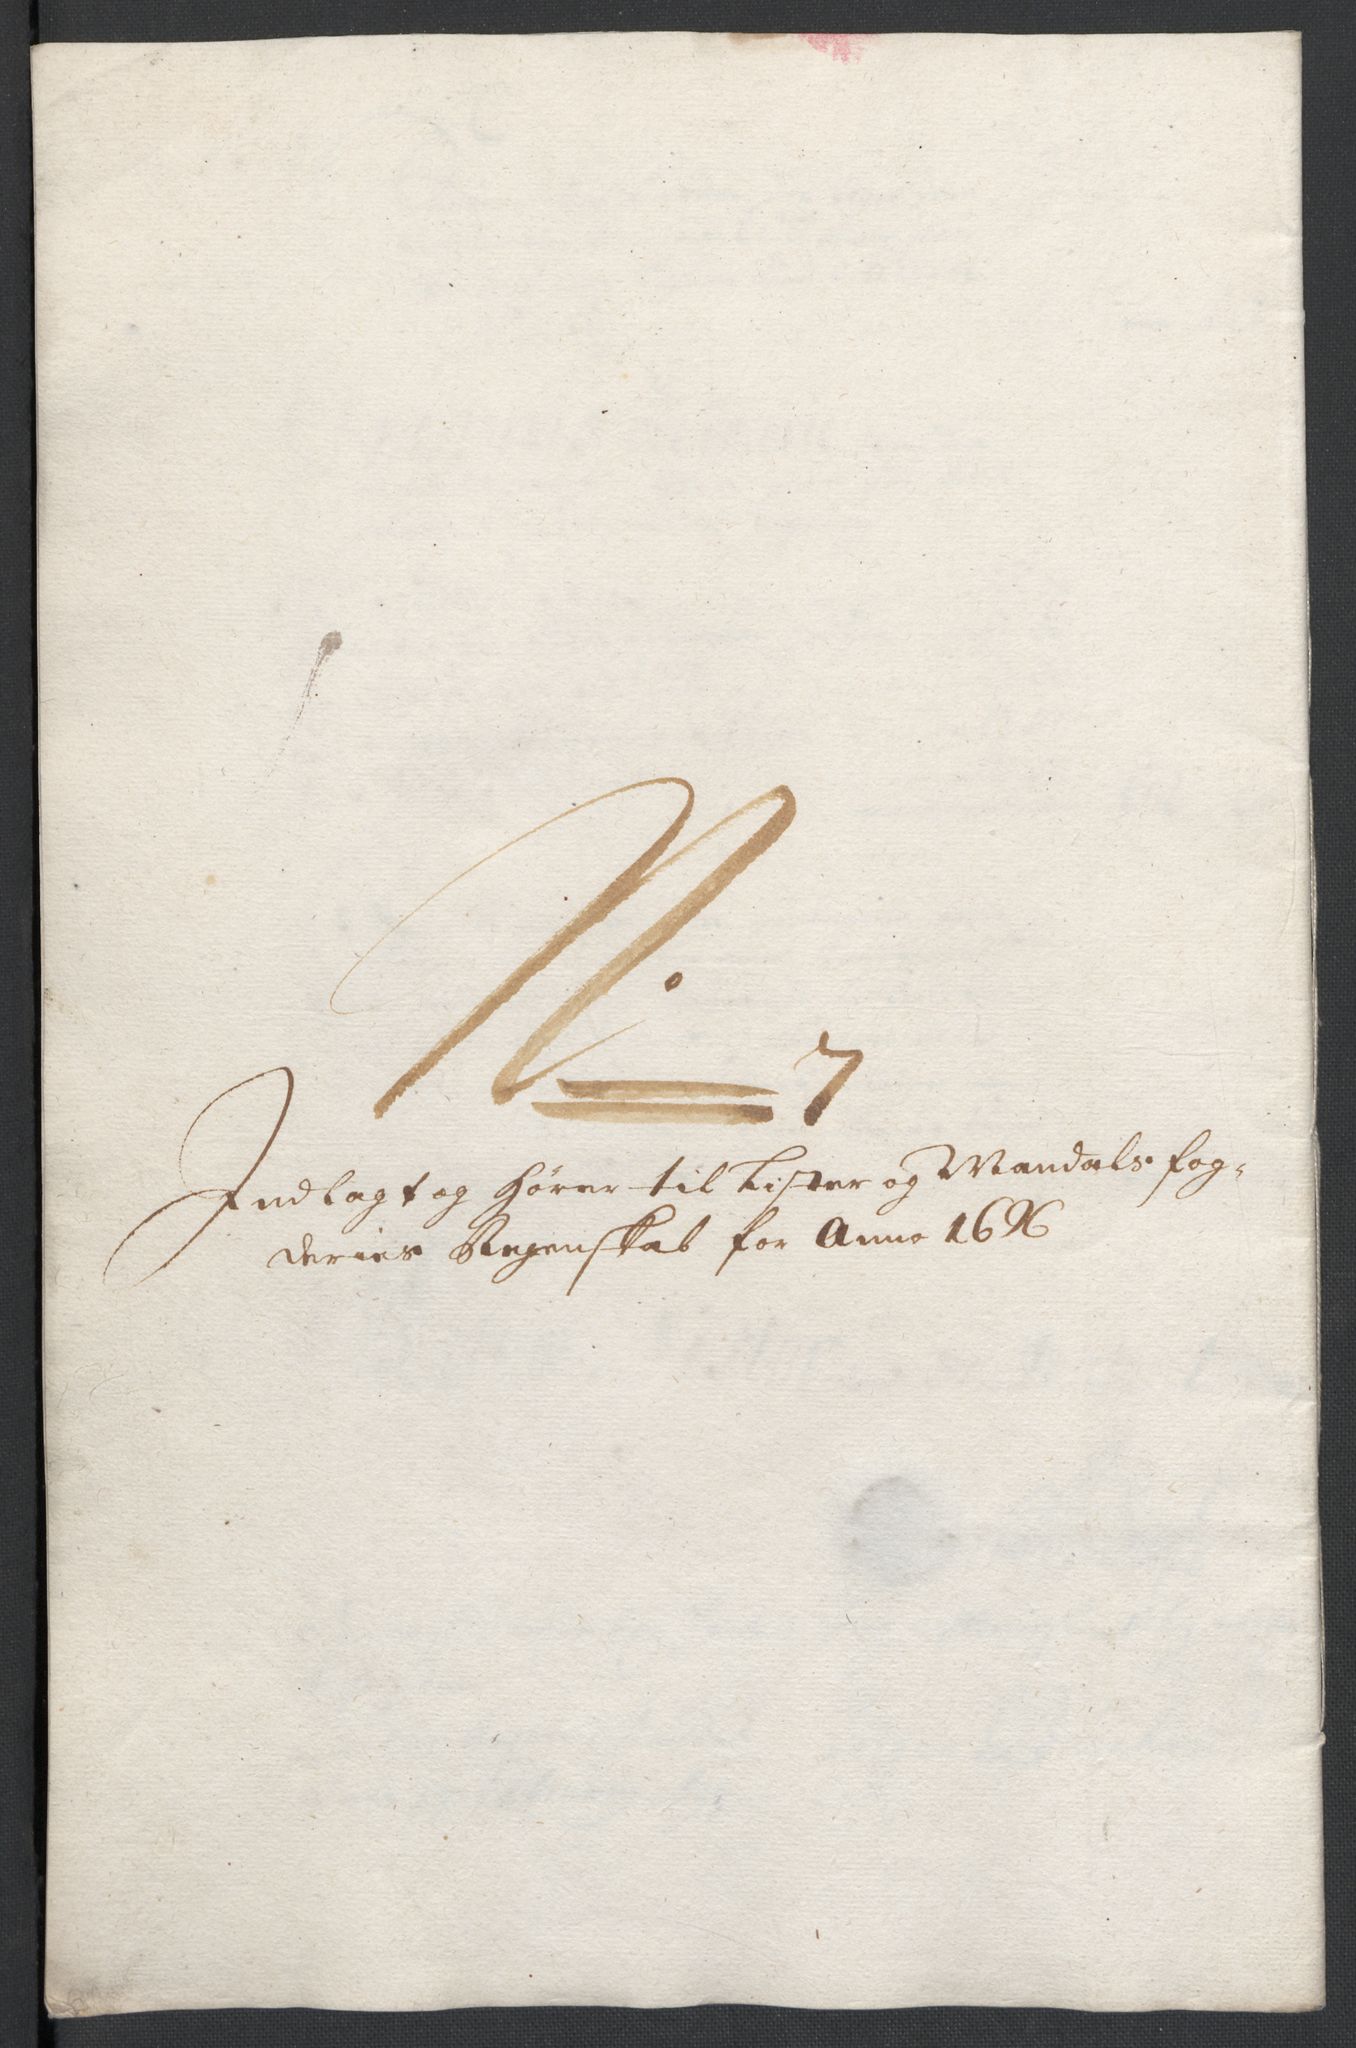 N. 7
Indlagt og hører til Lister og Mandals fog-
deries Regenskab for Anno 1696